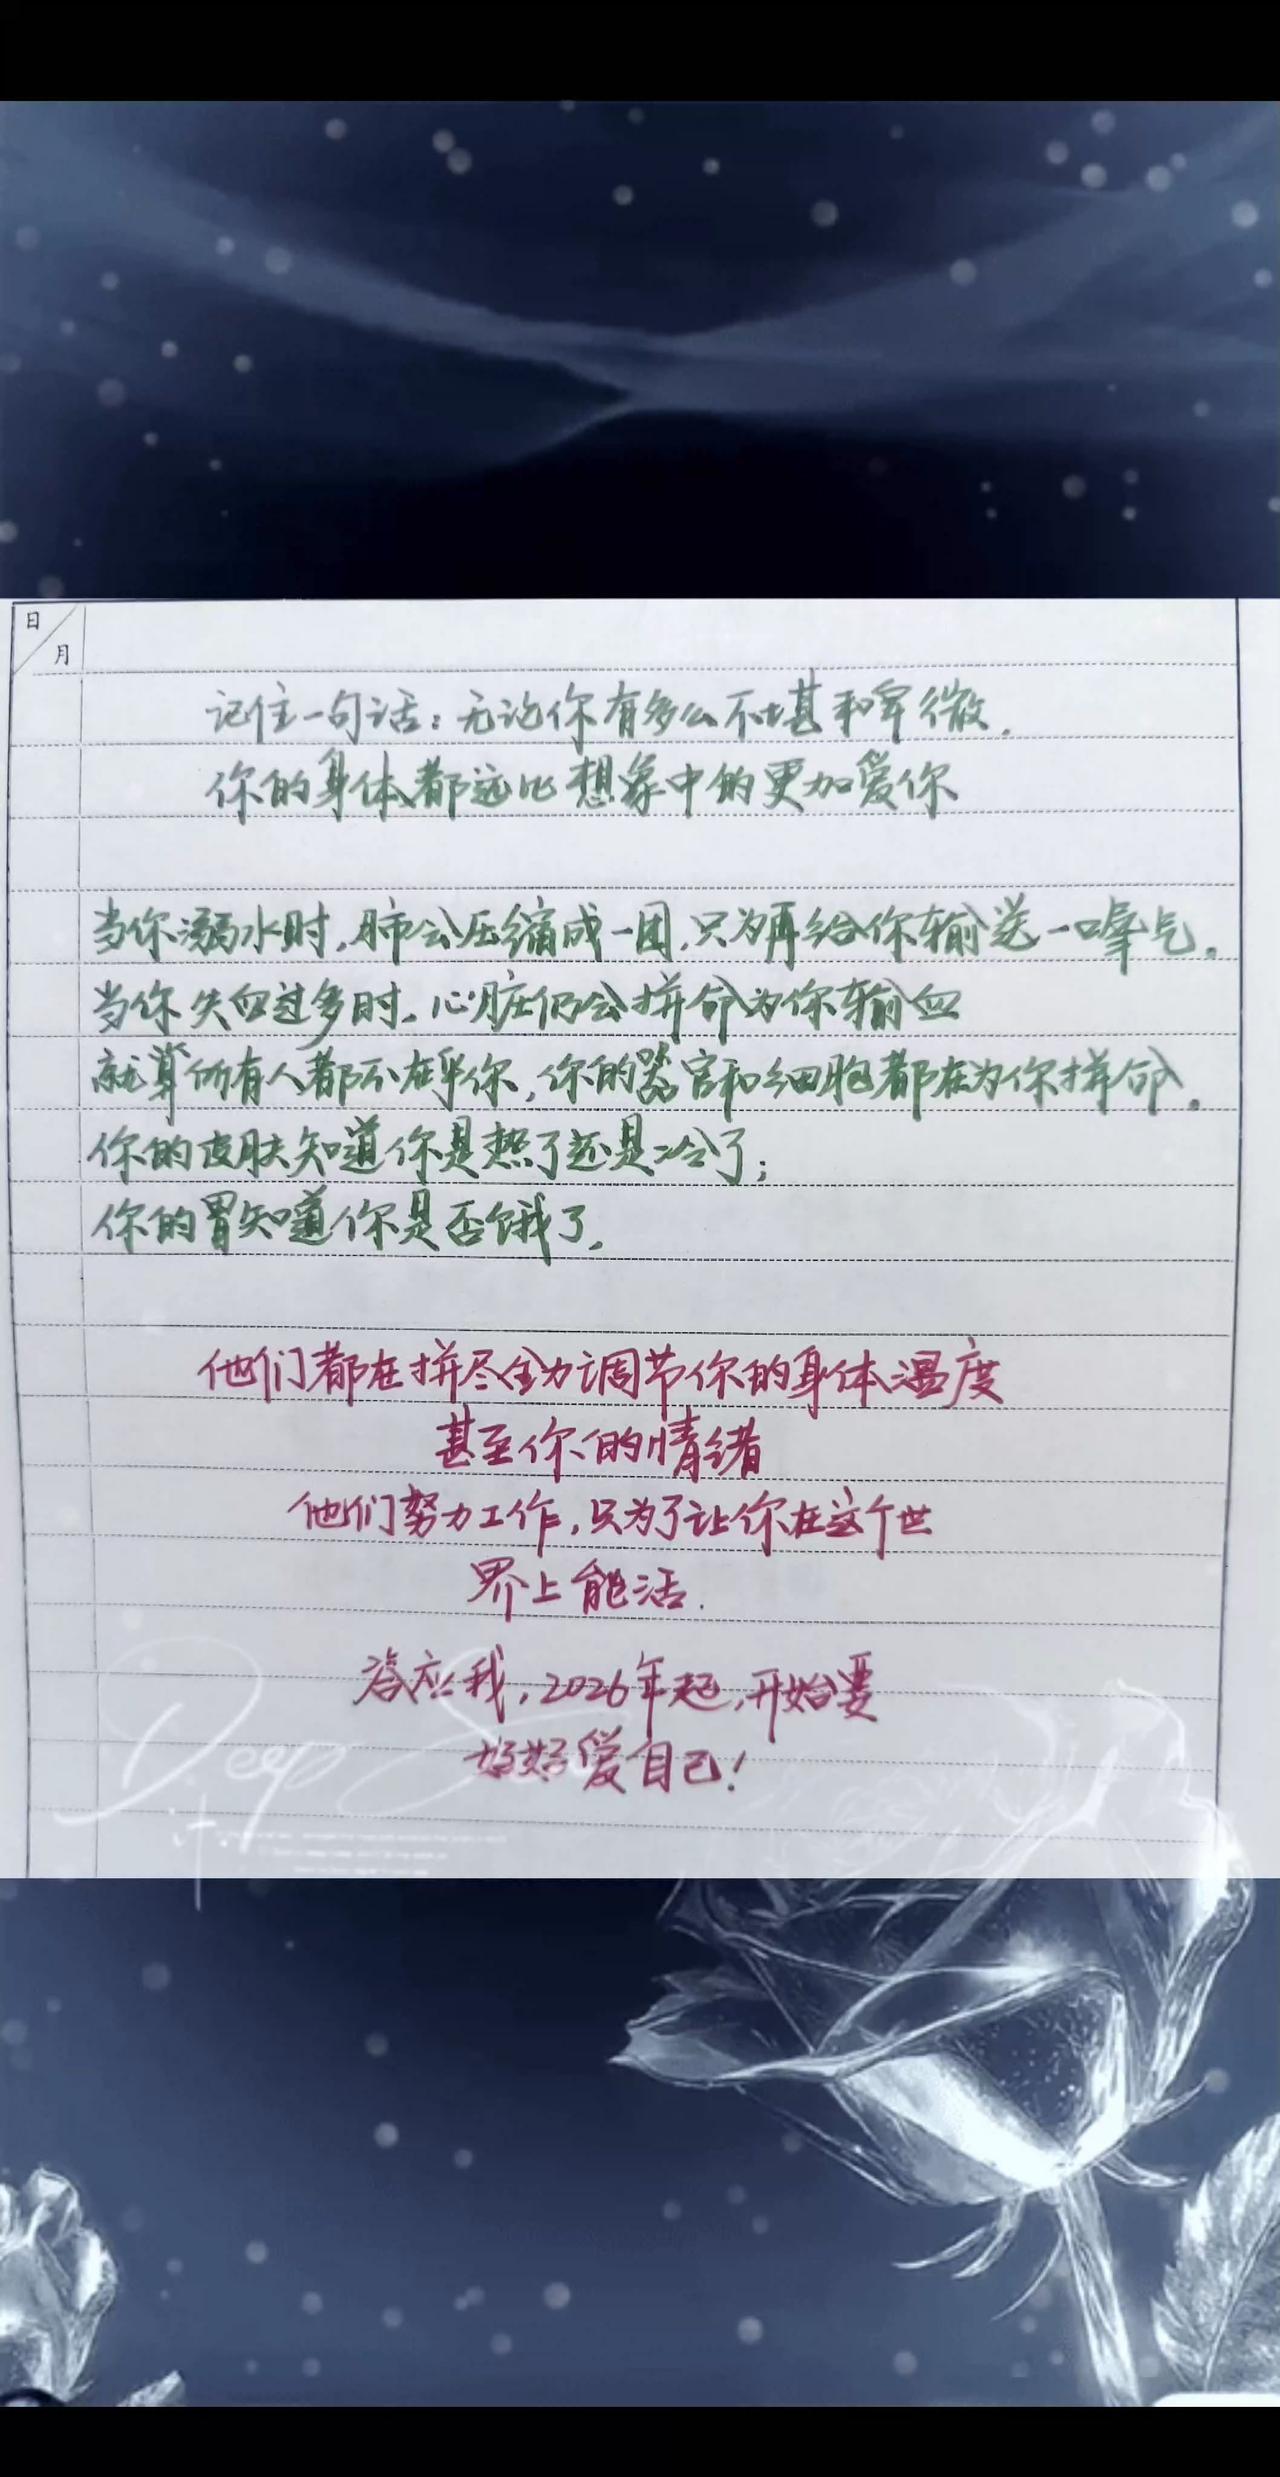 日
月
记住一句话：无论你有多么不堪和卑微.
你的身体都远比想象中的更加爱你
当你溺水时,肺会压缩成一团,只为再给你输送一口氧气。
当你失血过多时,心脏仍会拼命为你输血
就算所有人都不在乎你,你的器官和细胞都在为你拼命。
你的皮肤知道你是热了还是冷了;
你的胃知道你是否饿了,
他们都在拼尽全力调节你的身体温度
甚至你的情绪
他们努力工作,只为了让你在这个世
界上能活.
答应我,2026年起,开始要
好好爱自己!
Deep